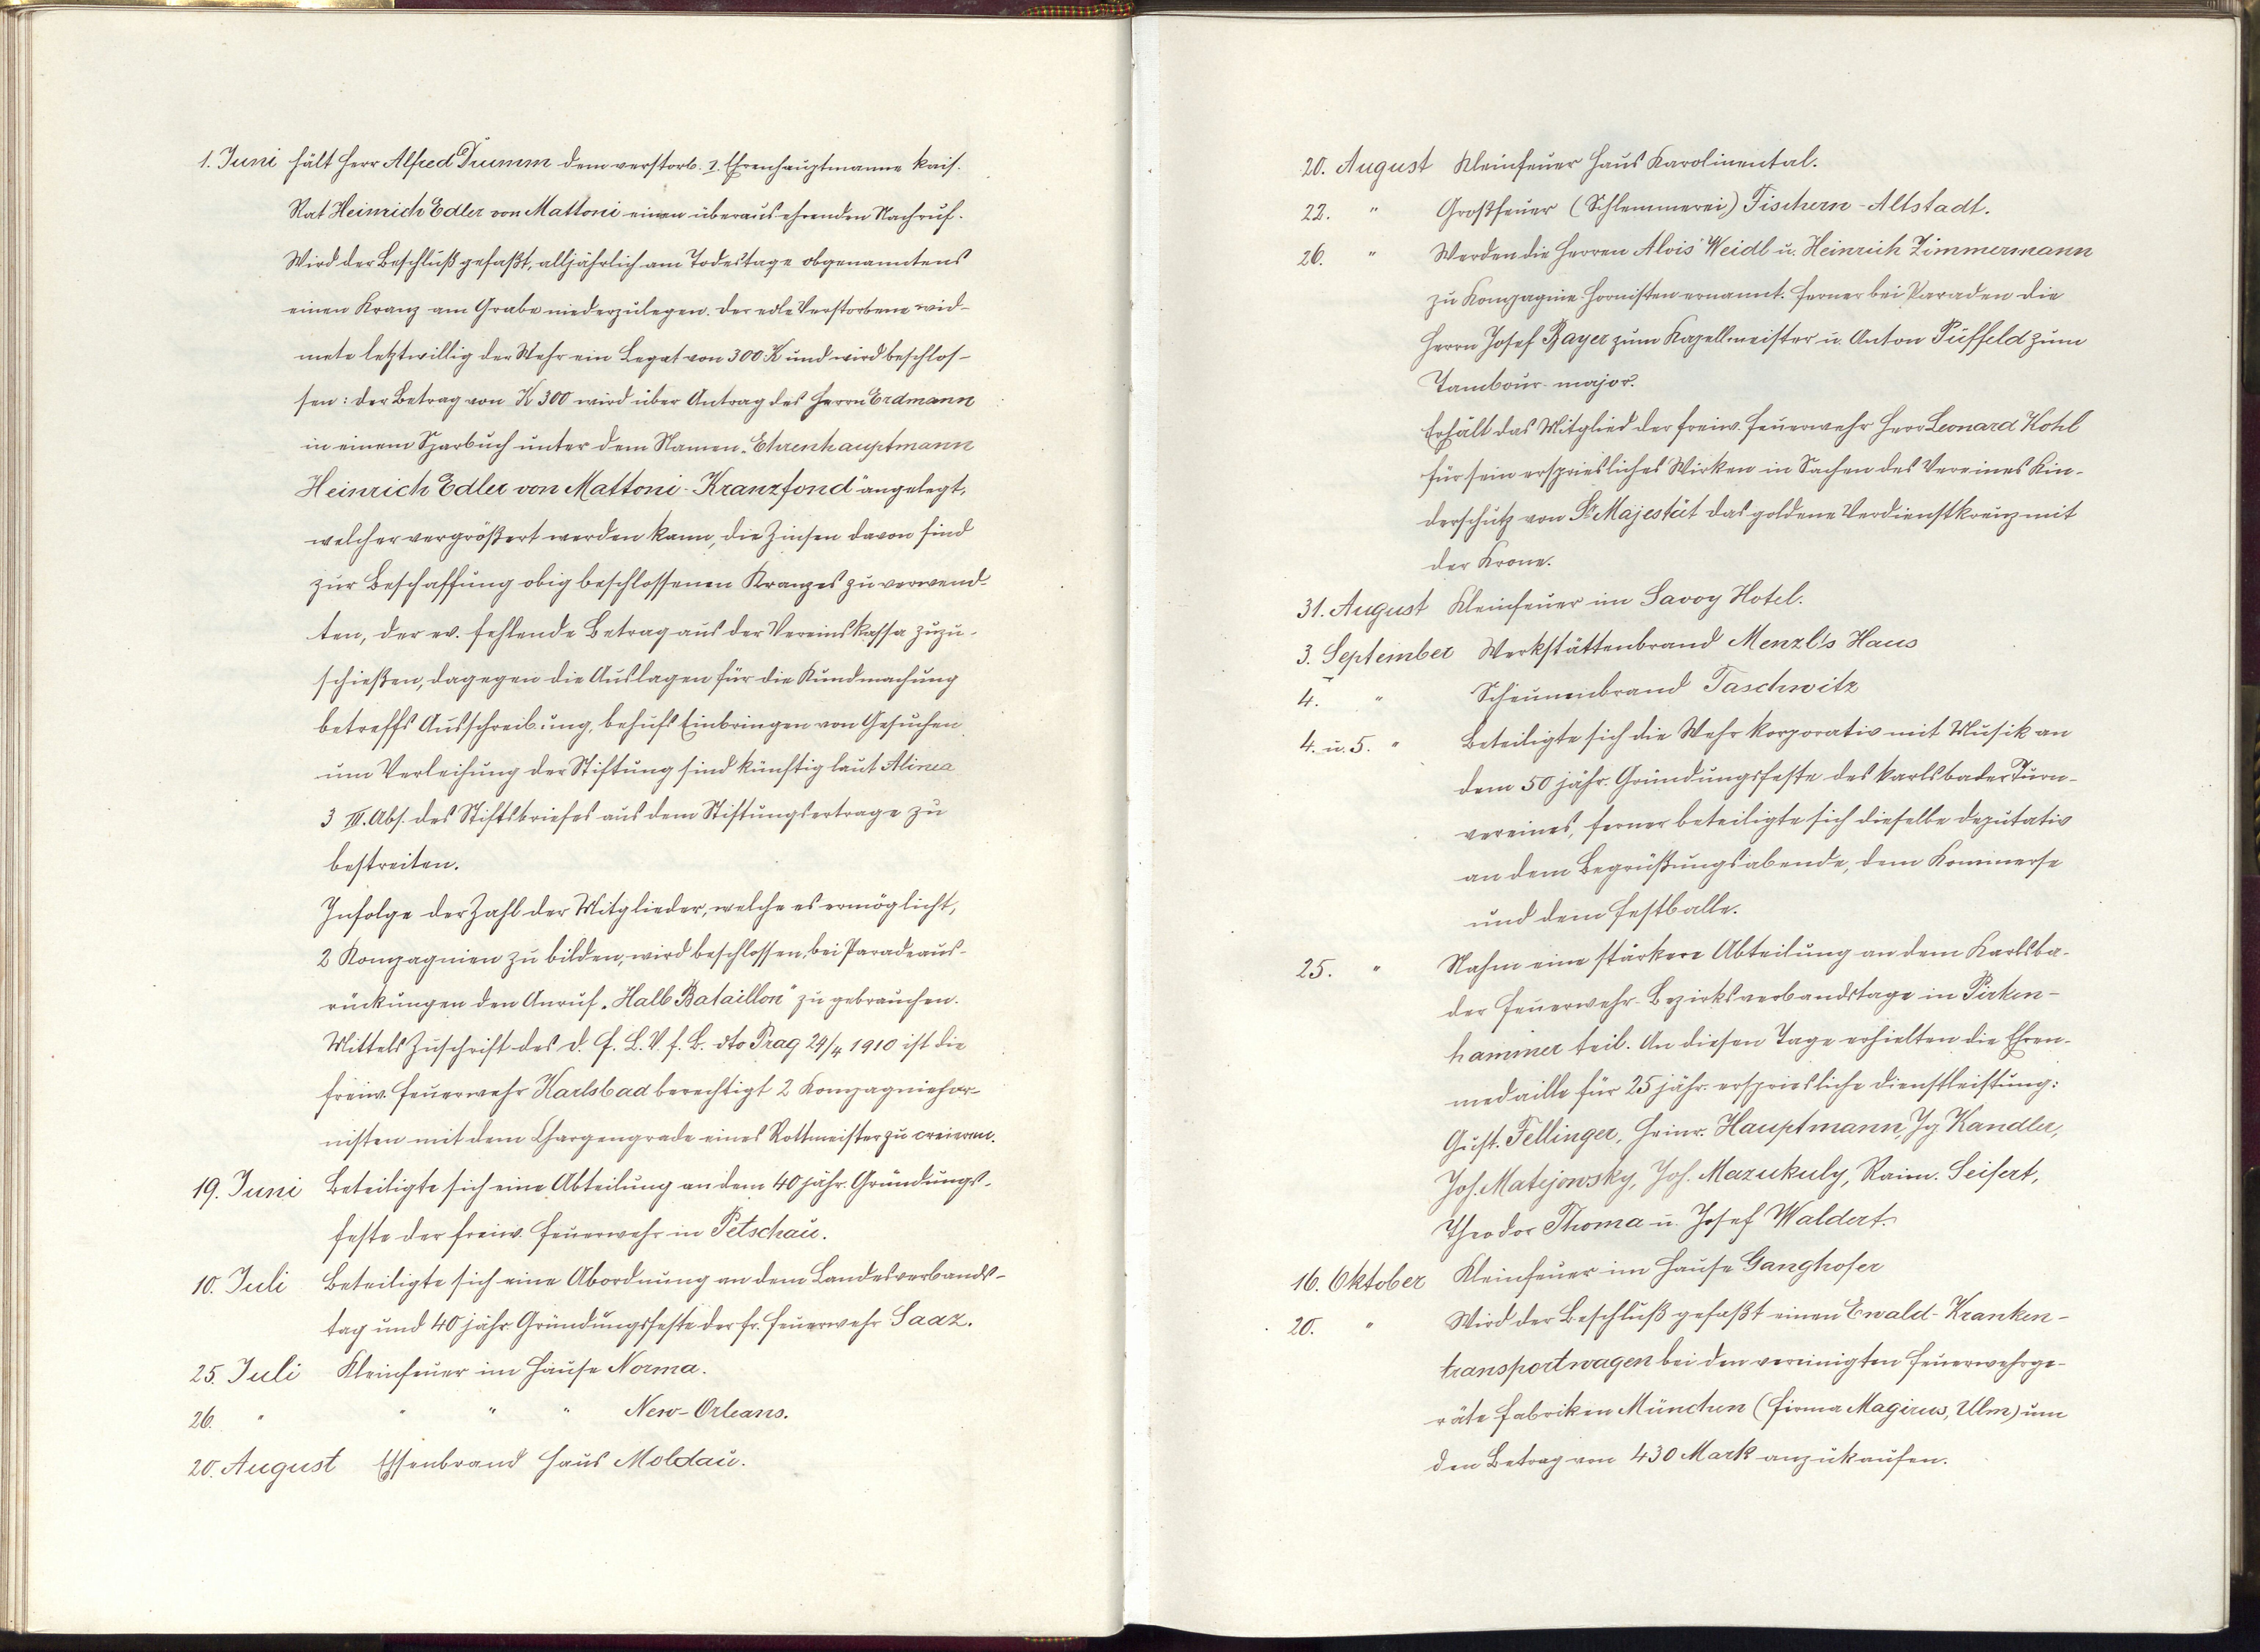 1. Juni hält Herr Alfred Drumm dem verstorb. I. Ehrenhauptmanne kais.
Rat Heinrich Edler von Mattoni einen überaus ehrenden Nachruf.
Wird der Beschluß gefaßt, alljährlich am Todestage obgenanntens
einen Kranz am Grabe niederzulegen. Der edle Verstorbene wid-
mete letztwillig der Wehr ein Legat von 300 K und wird beschlos-
sen: der Betrag von K 300 wird über Antrag des Herrn Erdmann
in einem Sparbuch unter dem Namen „Ehrenhauptmann
Heinrich Edler von Mattoni-Kranzfond" angelegt,
welcher vergrößert werden kann, die Zinsen davon sind
zur Beschaffung obig beschlossenen Kranzes zu verwend-
ten, der ev. fehlende Betrag aus der Vereinskassa zuzu-
schießen, dagegen die Auslagen für die Kundmachung
betreffs Ausschreibung, behufs Einbringen von Gesuchen
um Verleihung der Stiftung sind künftig laut Alinea
3 III. Abs. des Stiftsbriefes aus dem Stiftungsertrage zu
bestreiten.
Infolge der Zahl der Mitglieder, welche es ermöglicht,
2 Kompagnien zu bilden, wird beschlossen, bei Paradeaus-
rückungen den Anruf „Halb Bataillon" zu gebrauchen.
Mittels Zuschrift des d. f. L. V. f. B. dto Prag 29/4 1910 ist die
freiw. Feuerwehr Karlsbad berechtigt 2 Kompagniehor-
nisten mit dem Chargengrade eines Rottmeister zu creieren.
19. Juni Beteiligte sich eine Abteilung an dem 40 jähr. Gründungs-
feste der freiw. Feuerwehr in Petschau.
10. Juli Beteiligte sich eine Abordnung an dem Landesverbands-
tag und 40 jähr. Gründungsfeste der fr. Feuerwehr Saaz.
25. Juli Kleinfeuer im Hause Norma.
26. " " " " New-Orleans.
20. August Essenbrand Haus Moldau.
20. August Kleinfeuer Haus Karolinental.
22. " Großfeuer (Schlemmerei) Fischern-Altstadt.
26. " Werden die Herren Alois Weidl u. Heinrich Zimmermann
zu Kompagnie-Hornisten ernannt. Ferner bei Paraden die
Herrn Josef Bayer zum Kapellmeister u. Anton Püffeld zum
Tambour-major.
Erhält das Mitglied der freiw. Feuerwehr Herr Leonard Kohl
für sein ersprießliches Wirken in Sachen des Vereines Kin-
derschutz von Sr Majestät das goldene Verdienstkreuz mit
der Krone.
31. August Kleinfeuer im Savoy Hotel.
3. September Werkstättenbrand Menzl's Haus
4. " Scheunenbrand Taschwitz
4. u. 5. " Beteiligte sich die Wehr korporativ mit Musik an
dem 50 jähr. Gründungsfeste des Karlsbader Turn-
vereines, ferner beteiligte sich dieselbe deputativ
an dem Begrüßungsabende, dem Kommerse
und dem Festballe.
25. " Nahm eine stärkere Abteilung an dem Karlsba-
der Feuerwehr-Bezirksverbandstage in Pirken-
hammer teil. An diesen Tage erhielten die Ehren-
medaille für 25 jähr. ersprießliche Dienstleistung:
Gust. Fellinger, Heinr. Hauptmann, Ig Kandler,
Jos. Matejowsky, Jos. Mazukuly, Raim. Seifert,
Theodor Thoma u. Josef Waldert.
16. Oktober Kleinfeuer im Hause Ganghofer
20. " Wird der Beschluß gefaßt einen Ewald-Kranken-
transportwagen bei den vereinigten Feuerwehrge-
räte Fabriken München (Firma Magirus, Ulm) um
den Betrag von 430 Mark anzukaufen.